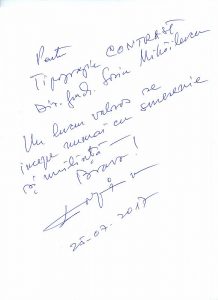 Pentru
Tipografia CONTRAST
Dir. fond. Sorin Mihăilescu
Un lucru valoros se
începe numai cu smerenie
și umilință —
Bravo!
25-07-2017